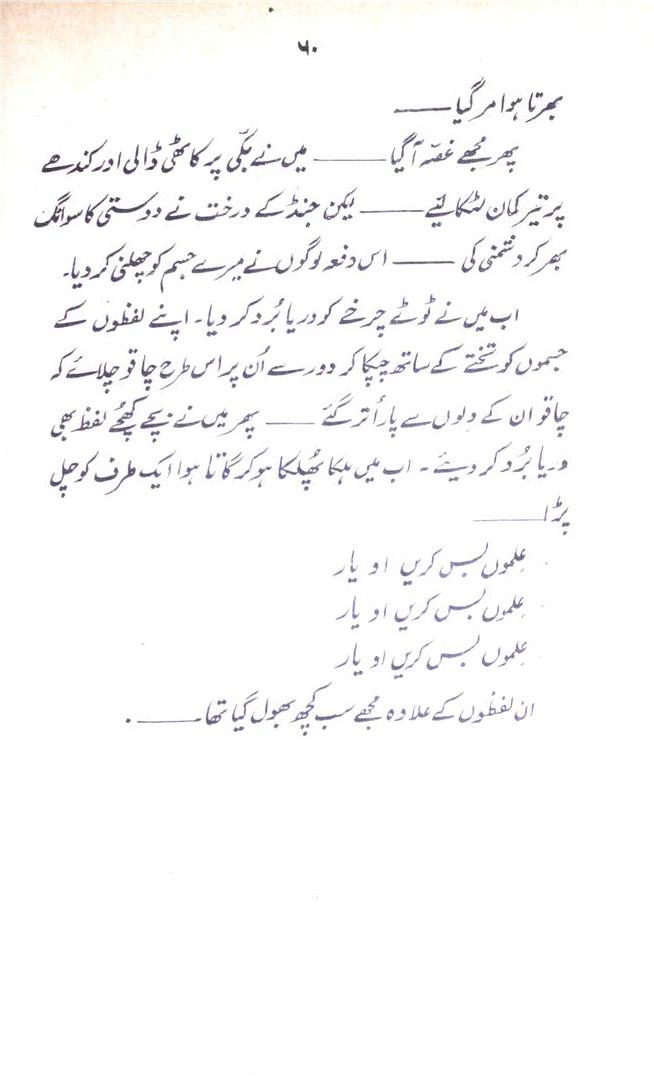 ۶۰
بھرتا ہوا مر گیا ——
پھر مجھے غصّہ آ گیا —— میں نے بکّی پر کاٹھی ڈالی اور کندھے
پر تیر کمان لٹکا لئیے —— لیکن جنڈ کے درخت نے دوستی کا سوانگ
بھر کر دشمنی کی —— اس دفعہ لوگوں نے میرے جسم کو چھلنی کر دیا۔
اب میں نے ٹوٹے چرخے کو دریا بُرد کر دیا۔ اپنے لفظوں کے
جسموں کو تختے کے ساتھ چپکا کر دور سے اُن پر اس طرح چاقو چلائے کہ
چاقو ان کے دلوں سے پار اُتر گئے —— پھر میں نے بچے کھچُے لفظ بھی
دریا بُرد کر دیئے ۔ اب میں ہلکا پھُلکا ہو کر گاتا ہوا ایک طرف کو چل
پڑا ——
عِلموں بس کریں او یار
عِلموں بس کریں او یار
عِلموں بس کریں او یار
ان لفظوں کے علاوہ مجھے سب کچھ بھول گیا تھا —— .